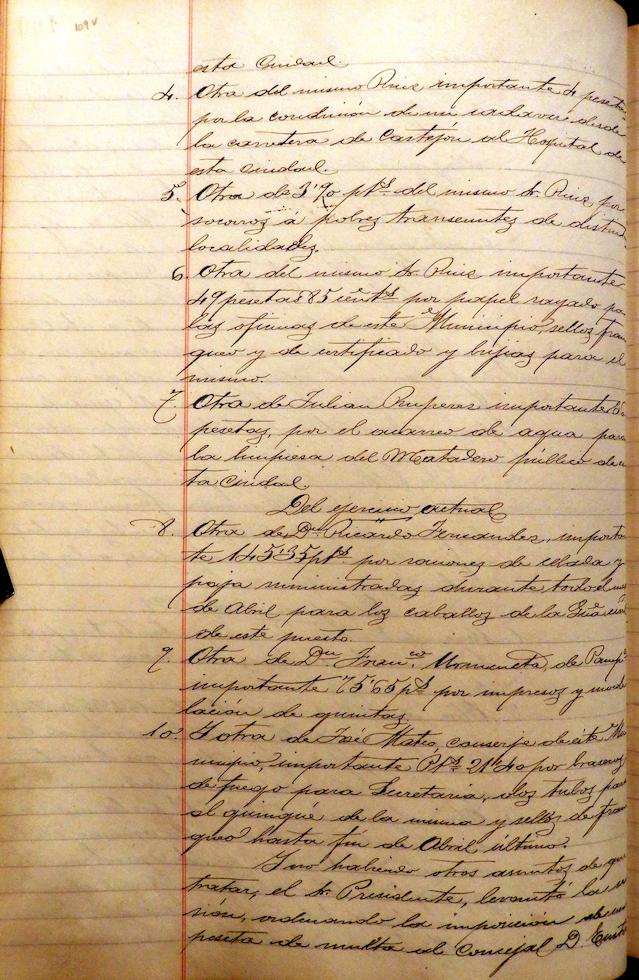 109 v
esta Ciudad.
4. Otra del mismo Ruiz importante 4 pesetas
por la condución de un cadaver desde
la carretera de Castejón al Hospital de
esta Ciudad.
5. Otra de 3'90 pts del mismo Sr. Ruiz, por
socorros á pobres transeuntes de distintas
localidades.
6. Otra del mismo Sr. Ruiz importante
49 pesetas 85 cents por papel rayado pa
las oficinas de este Municipio, sellos fran
queo y de certificado y bujias para el
mismo.
7. Otra de Julian Ruperez importante
pesetas, por el acarreo de agua para
la limpiesa del Matadero público de es
ta Ciudad
Del ejercicio actual
8. Otra de Dn Ricardo Fernandez, importan
te 145'35 pts por raciones de cebada y
paja suministradas durante todo el mes
de Abril para los caballos de la Guâ civil
de este puesto.
9. Otra de Dn Franco de Pamp
importante 75'65 pts por impresos y mode
lación de quintas
10. Y otra de José Mateo, conserje de este Mu
nicipio, importante Pts 21'40 por braseros
de fuego para Secretaria, dos tubos para
al quinqué de la misma y sellos de fran
queo hasta fin de Abril último.
Y no habiendo otros asuntos de que
tratar, el Sr. Presidente, levantó la se
sión, ordenando la imposición de una
peseta de multa al Concejal D.